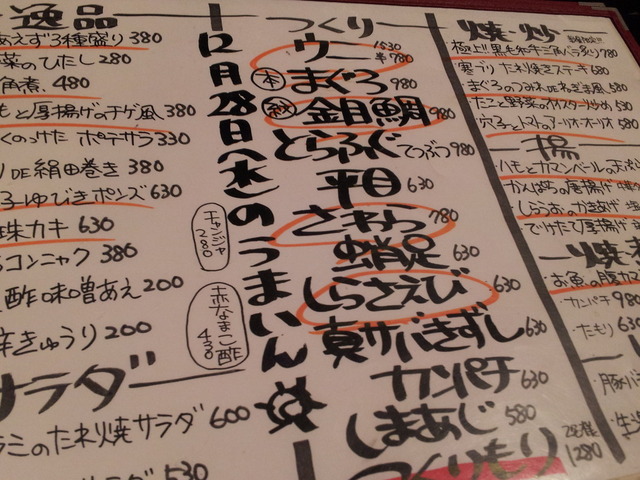 逸品
あえず3種盛り 380
菜のひたし 280
角煮. 480
もと厚揚げのチゲ風 380
くのっけた ポテサラ 330
DE絹田巻き 380
ゆびきポンズ 630
珠カキ 630
コンニャク 380
酢味噌あえ 200
きゅうり 200
サラダ
ラミのたれ焼サラダ 600
530
12月28日(水)のうまいん
チャンジャ 280
赤なまこ酢 430
つくり
ウニ 1530 半 780
本 まぐろ 980
金目鯛 980
とらふぐ てっぷつ 980
平目 630
さわら 780
蛸足 630
しらさえび 630
真サバきずし 630
カンパチ 630
しまあじ 580
つくりもり 2名様 1280
焼・炒
極上!!黒毛和牛三角バラ炙り 780
寒ブリ たれ焼きステーキ 680
まぐろのつみれDEねぎま風 580
たこと野菜のオイスター炒め 530
穴子とトマトのアーリオ・オーリオ 580
揚
ハモとカマンベールの天ぷら
かんぱちの唐揚げ
しらうおのかきあげ
でけたて厚揚げ
お魚の
カンパチ 980
たもり 630
豚バ